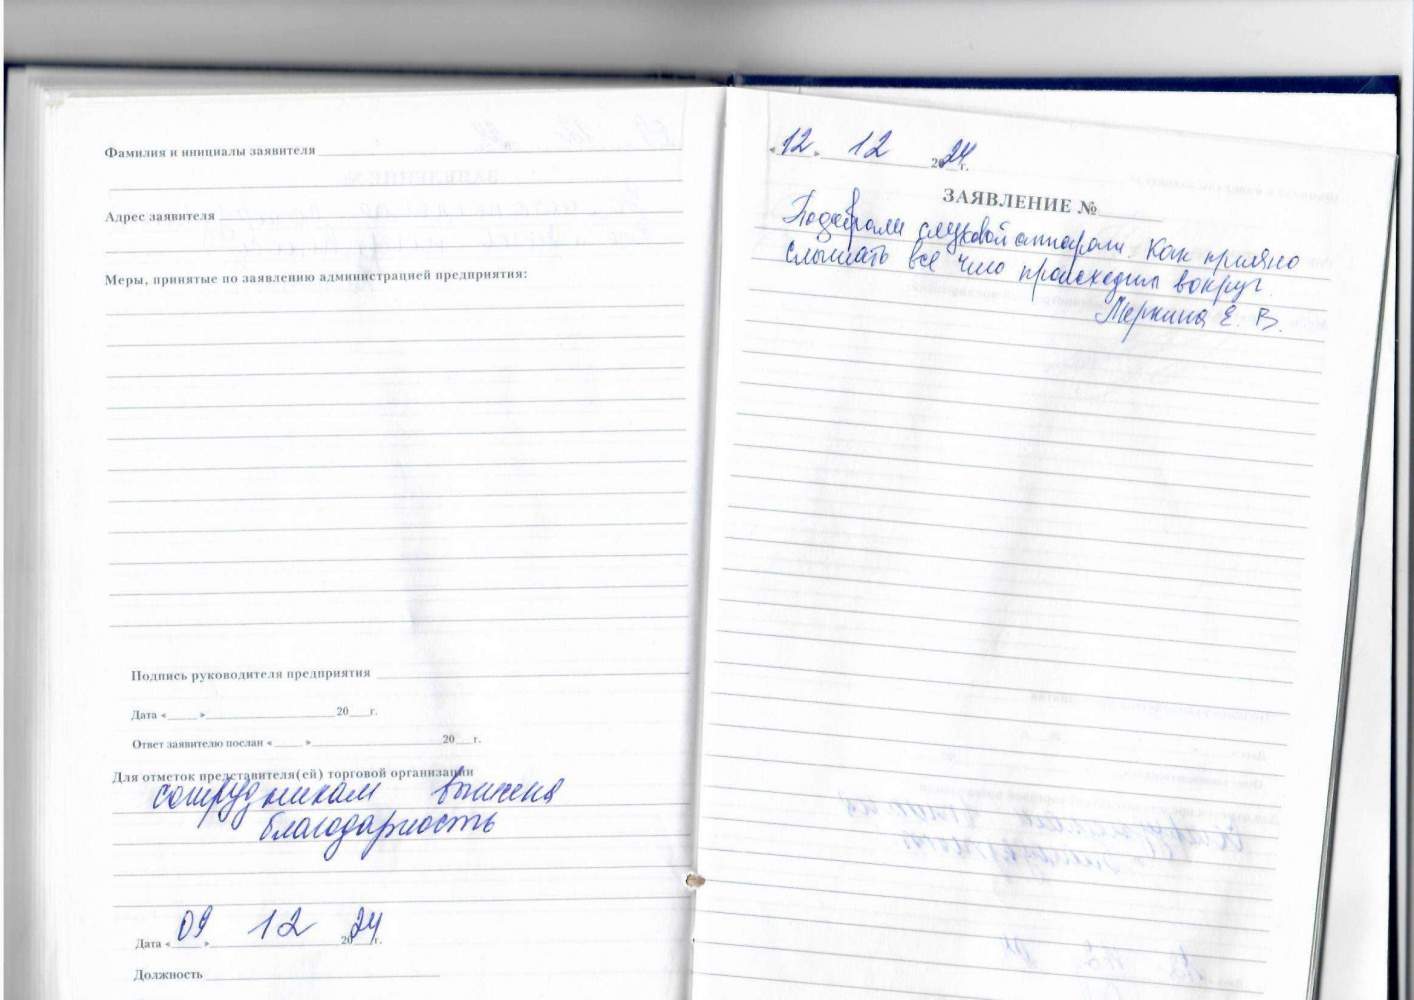 Фамилия и инициалы заявителя
Адрес заявителя
Меры, принятые по заявлению администрацией предприятия:
Подпись руководителя предприятия
Дата «___» ___ 20__г.
Ответ заявителю послан «___» ___ 20__г.
Для отметок представителя(ей) торговой организации
сотрудникам вынесена
благодарность
Дата «09» 12 2024г.
Должность
«12» 12 2024г.
ЗАЯВЛЕНИЕ №
Подобрали слуховой аппарат. Как приятно
слышать все что происходит вокруг.
Меркина Е. В.